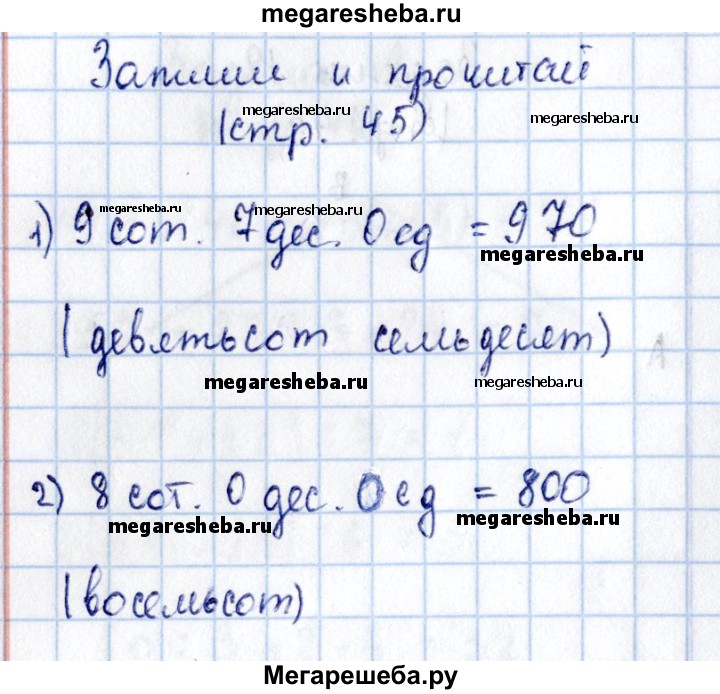 megaresheba.ru
Запиши и прочитай
megaresheba.ru
megaresheba.ru
(стр. 45)
megaresheba.ru
megaresheba.ru
1) 9 сот. 7 дес. 0 ед = 970
megaresheba.ru
(девятьсот семьдесят)
megaresheba.ru
megaresheba.ru
2) 8 сот. 0 дес. 0 ед = 800
megaresheba.ru
megaresheba.ru
(восемьсот)
Мегарешеба.ру